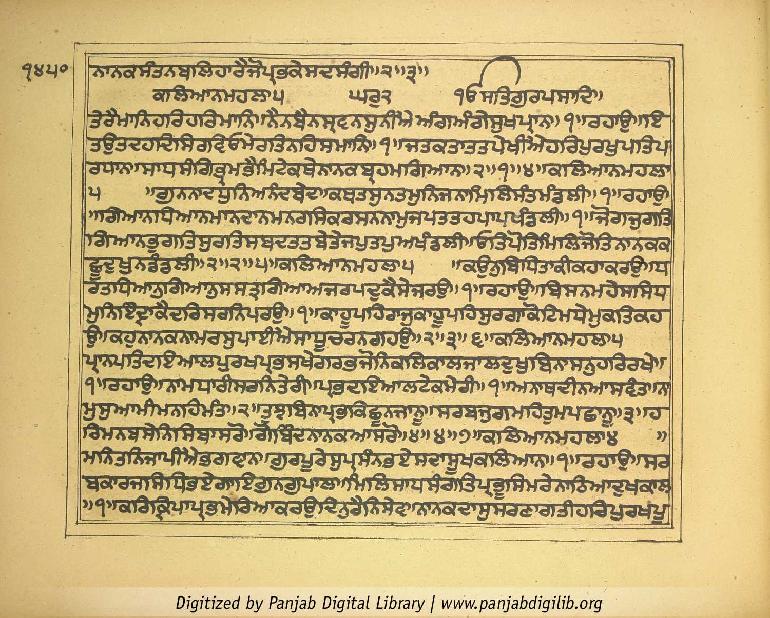 ੧੪੫੦
ਨਾਨਕਸੰਤਨਬਲਿਹਾਰੈਜੋਪ੍ਰਭਕੇਸਦਸੰਗੀ॥੨॥੩॥
ਕਲਿਆਨਮਹਲਾ੫ ਘਰੁ੨ ੧ੳਸਤਿਗੁਰਪ੍ਰਸਾਦਿ॥
ਤੇਰੈਮਾਨਿਹਰਿਹਰਿਮਾਨਿ॥ਨੈਨਬੈਨਸ੍ਰਵਨਸੁਨੀਐਅੰਗਅੰਗੇਸੁਖਪ੍ਰਾਨ॥੧॥ਰਹਾਉ॥ਇ
ਤਉਤਦਹਦਿਸਿਰਵਿਓਮੇਰਤਿਨਹਿਸਮਾਨਿ॥੧॥ਜਤਕਤਾਤਤਪੇਖੀਐਹਰਿਪੁਰਖਪਤਿਪ
ਰਧਾਨ॥ਸਾਧਸੰਗਿਭ੍ਰਮਭੈਮਿਟੇਕਥੇਨਾਨਕਬ੍ਰਹਮਗਿਆਨ॥੨॥੧॥੪॥ਕਲਿਆਨਮਹਲਾ
੫ ॥ਗੁਨਨਾਦਧੁਨਿਅਨੰਦਬੇਦ॥ਕਥਤਸੁਨਤਮੁਨਿਜਨਾਮਿਲਿਸੰਤਮੰਡਲੀ॥੧॥ਰਹਾਉ
॥ਗਿਆਨਧਿਆਨਮਾਨਦਾਨਮਨਰਸਿਕਰਸਨਨਾਮੁਜਪਤਤਹਪਾਪਖੰਡਲੀ॥੧॥ਜੋਗਜੁਗਤਿ
ਗਿਆਨਭੁਗਤਿਸੁਰਤਿਸਬਦਤਤਬੇਤੇਜਪੁਤਪੁਅਖੰਡਲੀ॥ਓਤਿਪੋਤਿਮਿਲਿਜੋਤਿਨਾਨਕਕ
ਛੂਦੁਖੁਨਡੰਡਲੀ॥੨॥੨॥੫॥ਕਲਿਆਨਮਹਲਾ੫ ॥ਕਉਨੁਬਿਧਿਤਾਕੀਕਹਾਕਰਉ॥ਧ
ਰਤਧਿਆਨੁਗਿਆਨੁਸਸਤ੍ਰਗਿਆਅਜਰਪਦੁਕੈਸੇਜਰਉ॥੧॥ਰਹਾਉ॥ਬਿਸਨਮਹੇਸਸਿਧ
ਮੁਨਿਇੰਦ੍ਰਾਕੈਦਰਿਸਰਨਿਪਰਉ॥੧॥ਕਾਹੂਪਹਿਰਾਜੁਕਾਹੂਪਹਿਸੁਰਗਾਕੋਟਿਮਧੇਮੁਕਤਿਕਹ
ਉ॥ਕਹੁਨਾਨਕਨਾਮਰਸੁਪਾਈਐਸਾਧੂਚਰਨਗਹਉ॥੨॥੩॥੬॥ਕਲਿਆਨਮਹਲਾ੫
ਪ੍ਰਾਨਪਤਿਦਇਆਲਪੁਰਖਪ੍ਰਭਸਖੇ॥ਗਰਭਜੋਨਿਕਲਿਕਾਲਜਾਲਦੁਖਬਿਨਾਸਨੁਹਰਿਰਖੇ॥
੧॥ਰਹਾਉ॥ਨਾਮਧਾਰੀਸਰਨਿਤੇਰੀ॥ਪ੍ਰਭਦਇਆਲਟੇਕਮੇਰੀ॥੧॥ਅਨਾਥਦੀਨਆਸਵੰਤ॥ਨਾ
ਮੁਸੁਆਮੀਮਨਹਿਮੰਤ॥੨॥ਤੁਝਬਿਨਾਪ੍ਰਭਕਿਛੂਨਜਾਨੂ॥ਸਰਬਜੁਗਮਹਿਤੁਮਪਛਾਨੂ॥੩॥ਹ
ਰਿਮਨਬਸੇਨਿਸਿਬਾਸਰੋ॥ਗੋਬਿੰਦਨਾਨਕਆਸਰੋ॥੪॥੪॥੭॥ਕਲਿਆਨਮਹਲਾ੫ ॥
ਮਨਿਤਨਿਜਾਪੀਐਭਗਵਾਨ॥ਗੁਰਪੂਰੇਸੁਪ੍ਰਸੰਨਭਏਸਦਾਸੂਖਕਲਿਆਨ॥੧॥ਰਹਾਉ॥ਸਰ
ਬਕਾਰਜਸਿਧਿਭਏਗਾਇਗੁਨਗੁਪਾਲ॥ਮਿਲਿਸਾਧਸੰਗਤਿਪ੍ਰਭੂਸਿਮਰੇਨਾਠਿਆਦੁਖਕਾਲ
॥੧॥ਕਰਿਕਿਰਪਾਪ੍ਰਭਮੇਰਿਆਕਰਉਦਿਨੁਰੈਨਿਸੇਵ॥ਨਾਨਕਦਾਸੁਸਰਣਾਗਤੀਹਰਿਪੁਰਖਪੂ
Digitized by Panjab Digital Library | www.panjabdigilib.org